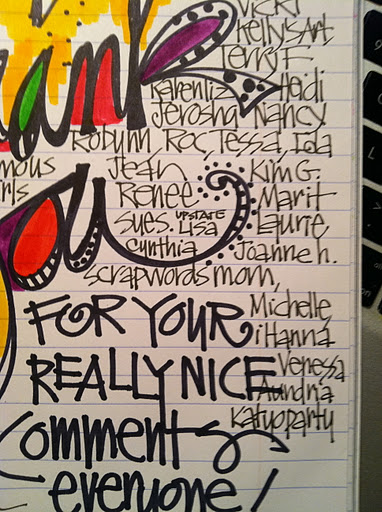 Vicki
Kelly's Art
Terry F
Karenliz Heidi
Jerosha Nancy
Robynn, Roc, Tessa, Ida
Jean Kim G.
Renee Marit
Sues. UPSTATE LISA Laurie
Cynthia Joanne h.
scrapwordsmom,
FOR YOUR Michelle
iHanna
REALLY NICE Venessa
Aundria
Katyoparty
Comment
everyone!